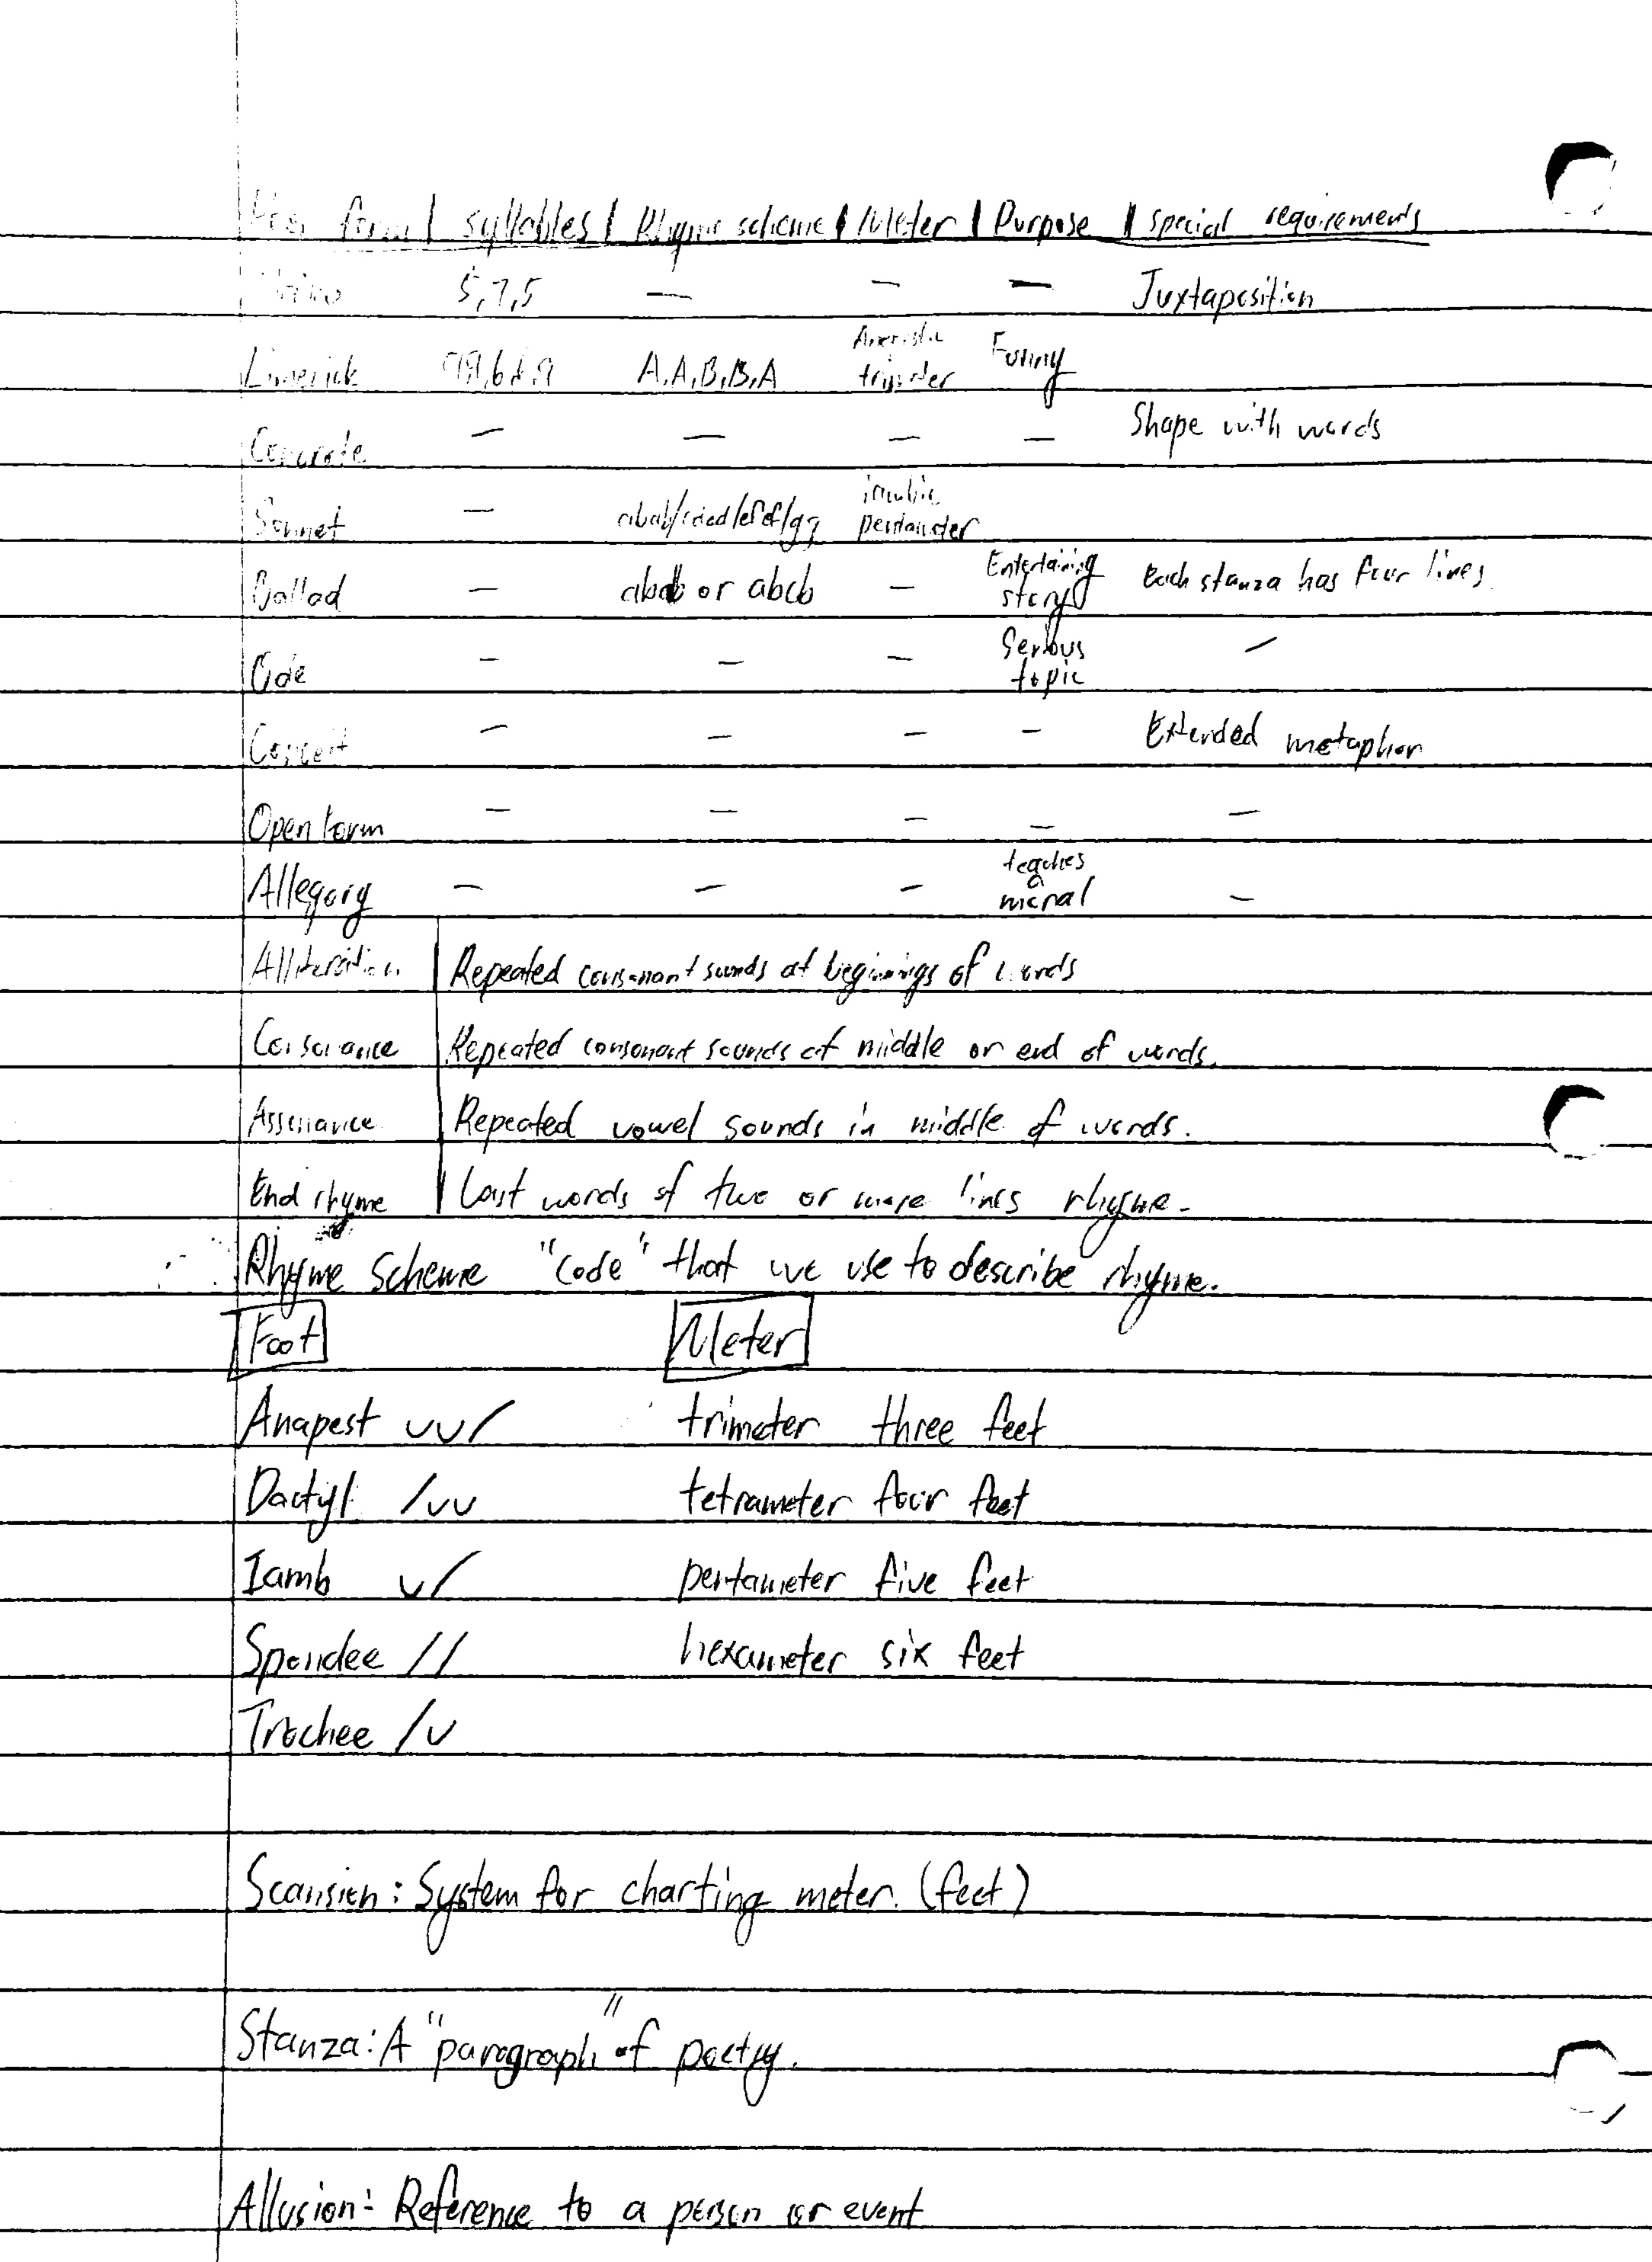 form | syllables | Rhyme scheme | Meter | Purpose | special requirements
5,7,5 — — — Juxtaposition
Limerick A,A,B,B,A trimeter Funny
Concrete — — — — Shape with words
Sonnet — abab/cdcd/efef/gg iambic pentameter
Ballad — or abcb — Entertaining story Each stanza has four lines
Ode — — — Serious topic —
Conceit — — — — Extended metaphor
Open form — — — — —
Allegory — — — teaches a moral —
Alliteration | Repeated consonant sounds at beginnings of words
Consonance | Repeated consonant sounds at middle or end of words.
Assonance | Repeated vowel sounds in middle of words.
End rhyme | Last words of two or more lines rhyme.
Rhyme scheme "code" that we use to describe rhyme.
Foot Meter
Anapest ∪∪/ trimeter three feet
Dactyl /∪∪ tetrameter four feet
Iamb ∪/ pentameter five feet
Spondee // hexameter six feet
Trochee /∪
Scansion: System for charting meter. (feet)
Stanza: A "paragraph" of poetry.
Allusion: Reference to a person or event